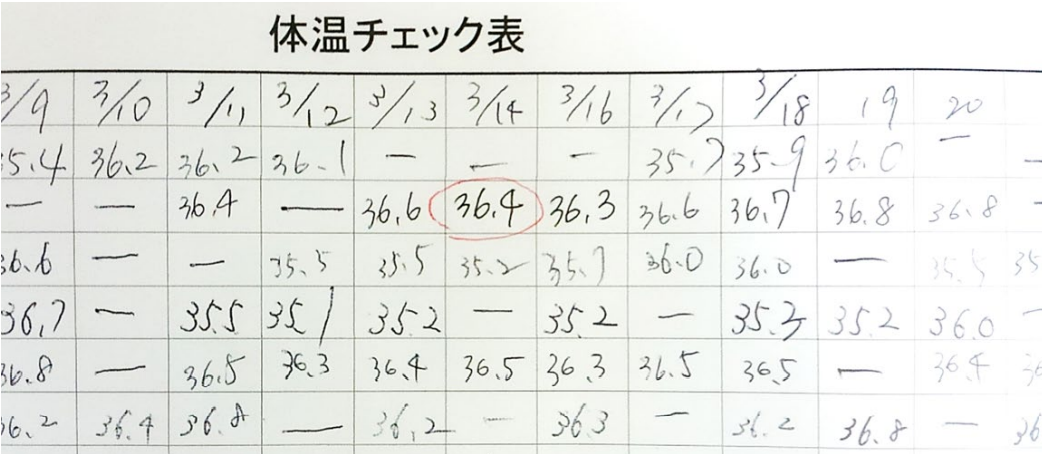 体温チェック表
3/9 3/10 3/11 3/12 3/13 3/14 3/16 3/17 3/18 19 20
35.4 36.2 36.2 36.1 — — — 35.7 35.9 36.0 — —
— — 36.4 — 36.6 36.4 36.3 36.6 36.7 36.8 36.8 -
36.6 — — 35.5 35.5 35.2 35.7 36.0 36.0 — 35.5 35
36.7 — 35.5 35.1 35.2 — 35.2 — 35.3 35.2 36.0 —
36.8 — 36.5 36.3 36.4 36.5 36.3 36.5 36.5 — 36.4 36
36.2 36.4 36.8 — 36.2 — 36.3 — 36.2 36.8 — 36